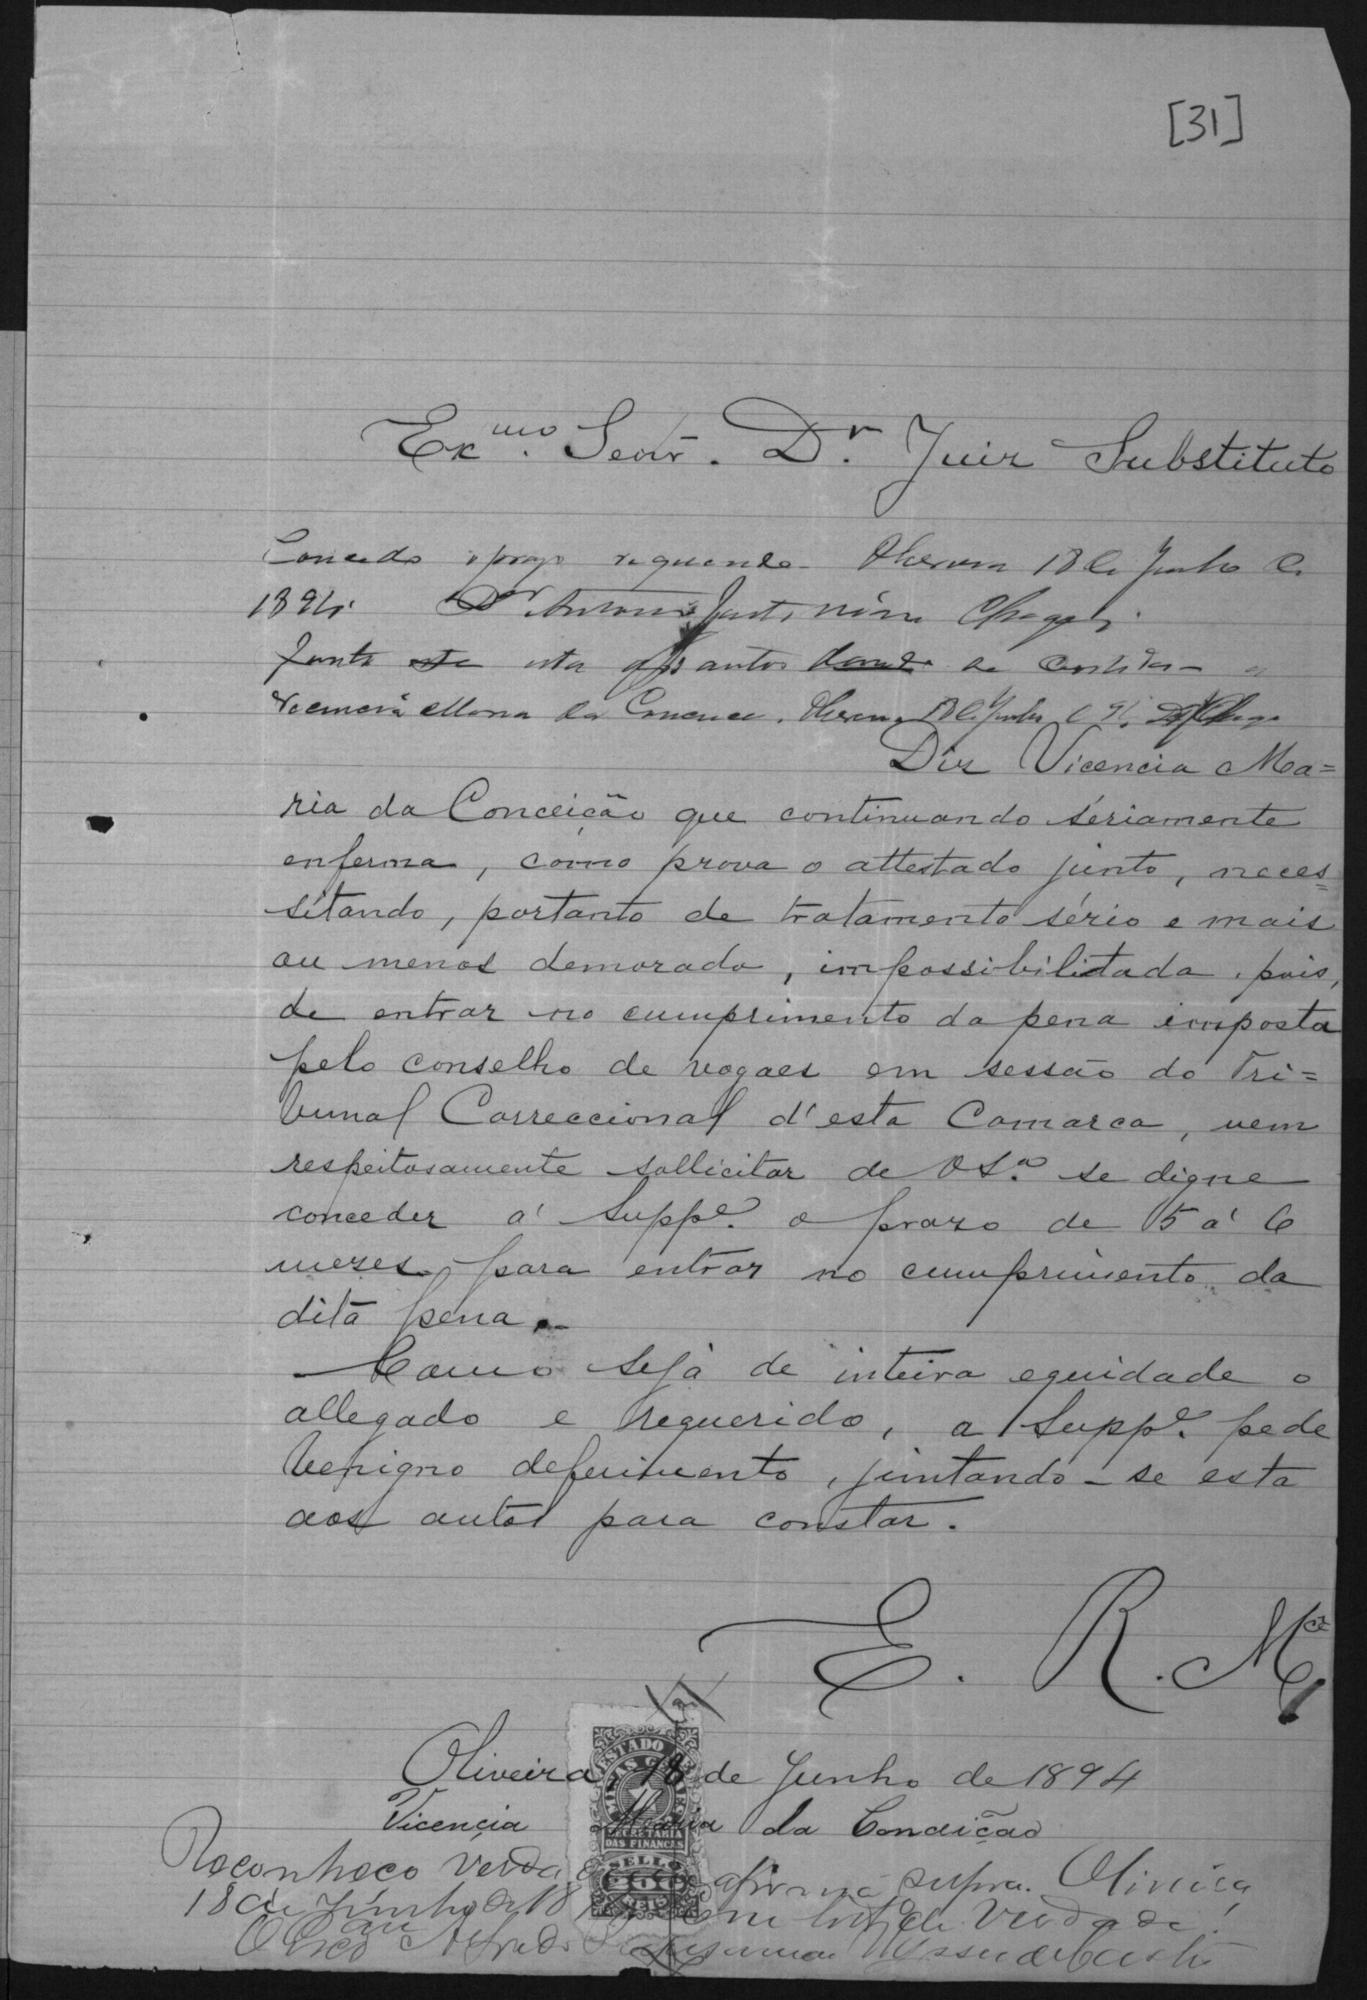 [31]
Exmo. Senr. Dr. Juiz Substituto
Concedo o prazo requerido. Oliveira 18 de Junho de
1894. Dr. Antonio Justiniano Chagas.
Junte esta aos autos
Maria da Conceição. Oliveira, 18 de Junho
Diz Vicencia Ma=
ria da Conceição que continuando sériamente
enferma, como prova o attestado junto, neces=
sitando, portanto de tratamento sério e mais
ou menos demorado, impossibilitada, pois,
de entrar no cumprimento da pena imposta
pelo conselho de vogaes em sessão do Tri=
bunal Correccional d'esta Comarca, vem
respeitosamente sollicitar de VSa. se digne
conceder á Suppe. o prazo de 5 á 6
mezes para entrar no cumprimento da
dita pena.
Como seja de inteira equidade o
allegado e requerido, a Suppe. pede
benigno deferimento, juntando-se esta
aos autos para constar.
E. R. Mce.
ESTADO DE MINAS GERAES
Oliveira, 18 de Junho de 1894
Vicencia Maria da Conceição
SECRETARIA DAS FINANÇAS
SELLO
Reconheço verdadeira a firma supra. Oliveira,
18 de Junho de 1894. Em testo. de verdade.